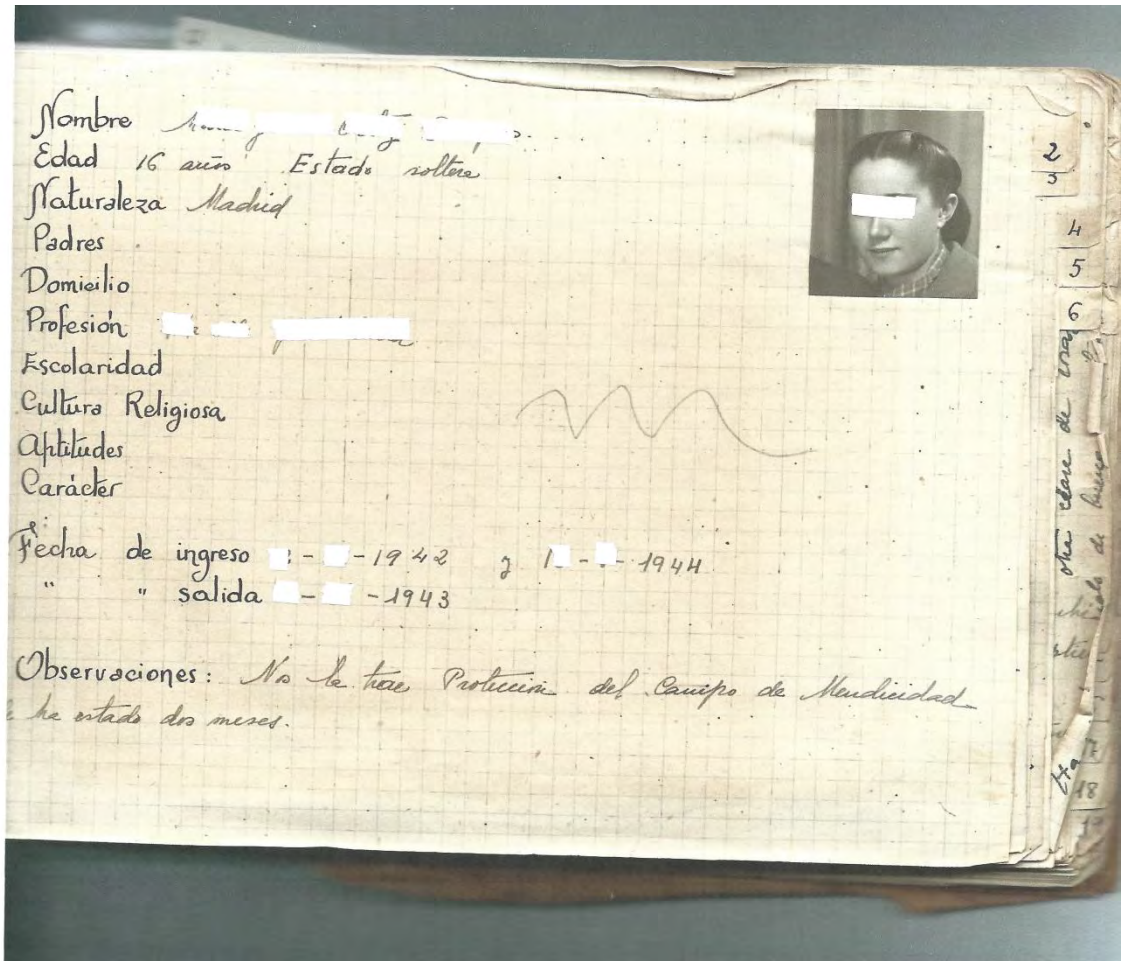 Nombre
Edad 16 años Estado soltera
Naturaleza Madrid
Padres
Domicilio
Profesión
Escolaridad
Cultura Religiosa
Aptitudes
Carácter
Fecha de ingreso - -1942 y 1 - - 1944
" " salida - -1943
Observaciones: No la trae Protección del Campo de Mendicidad
ha estado dos meses.
2
3
4
5
6
otra clase de
18